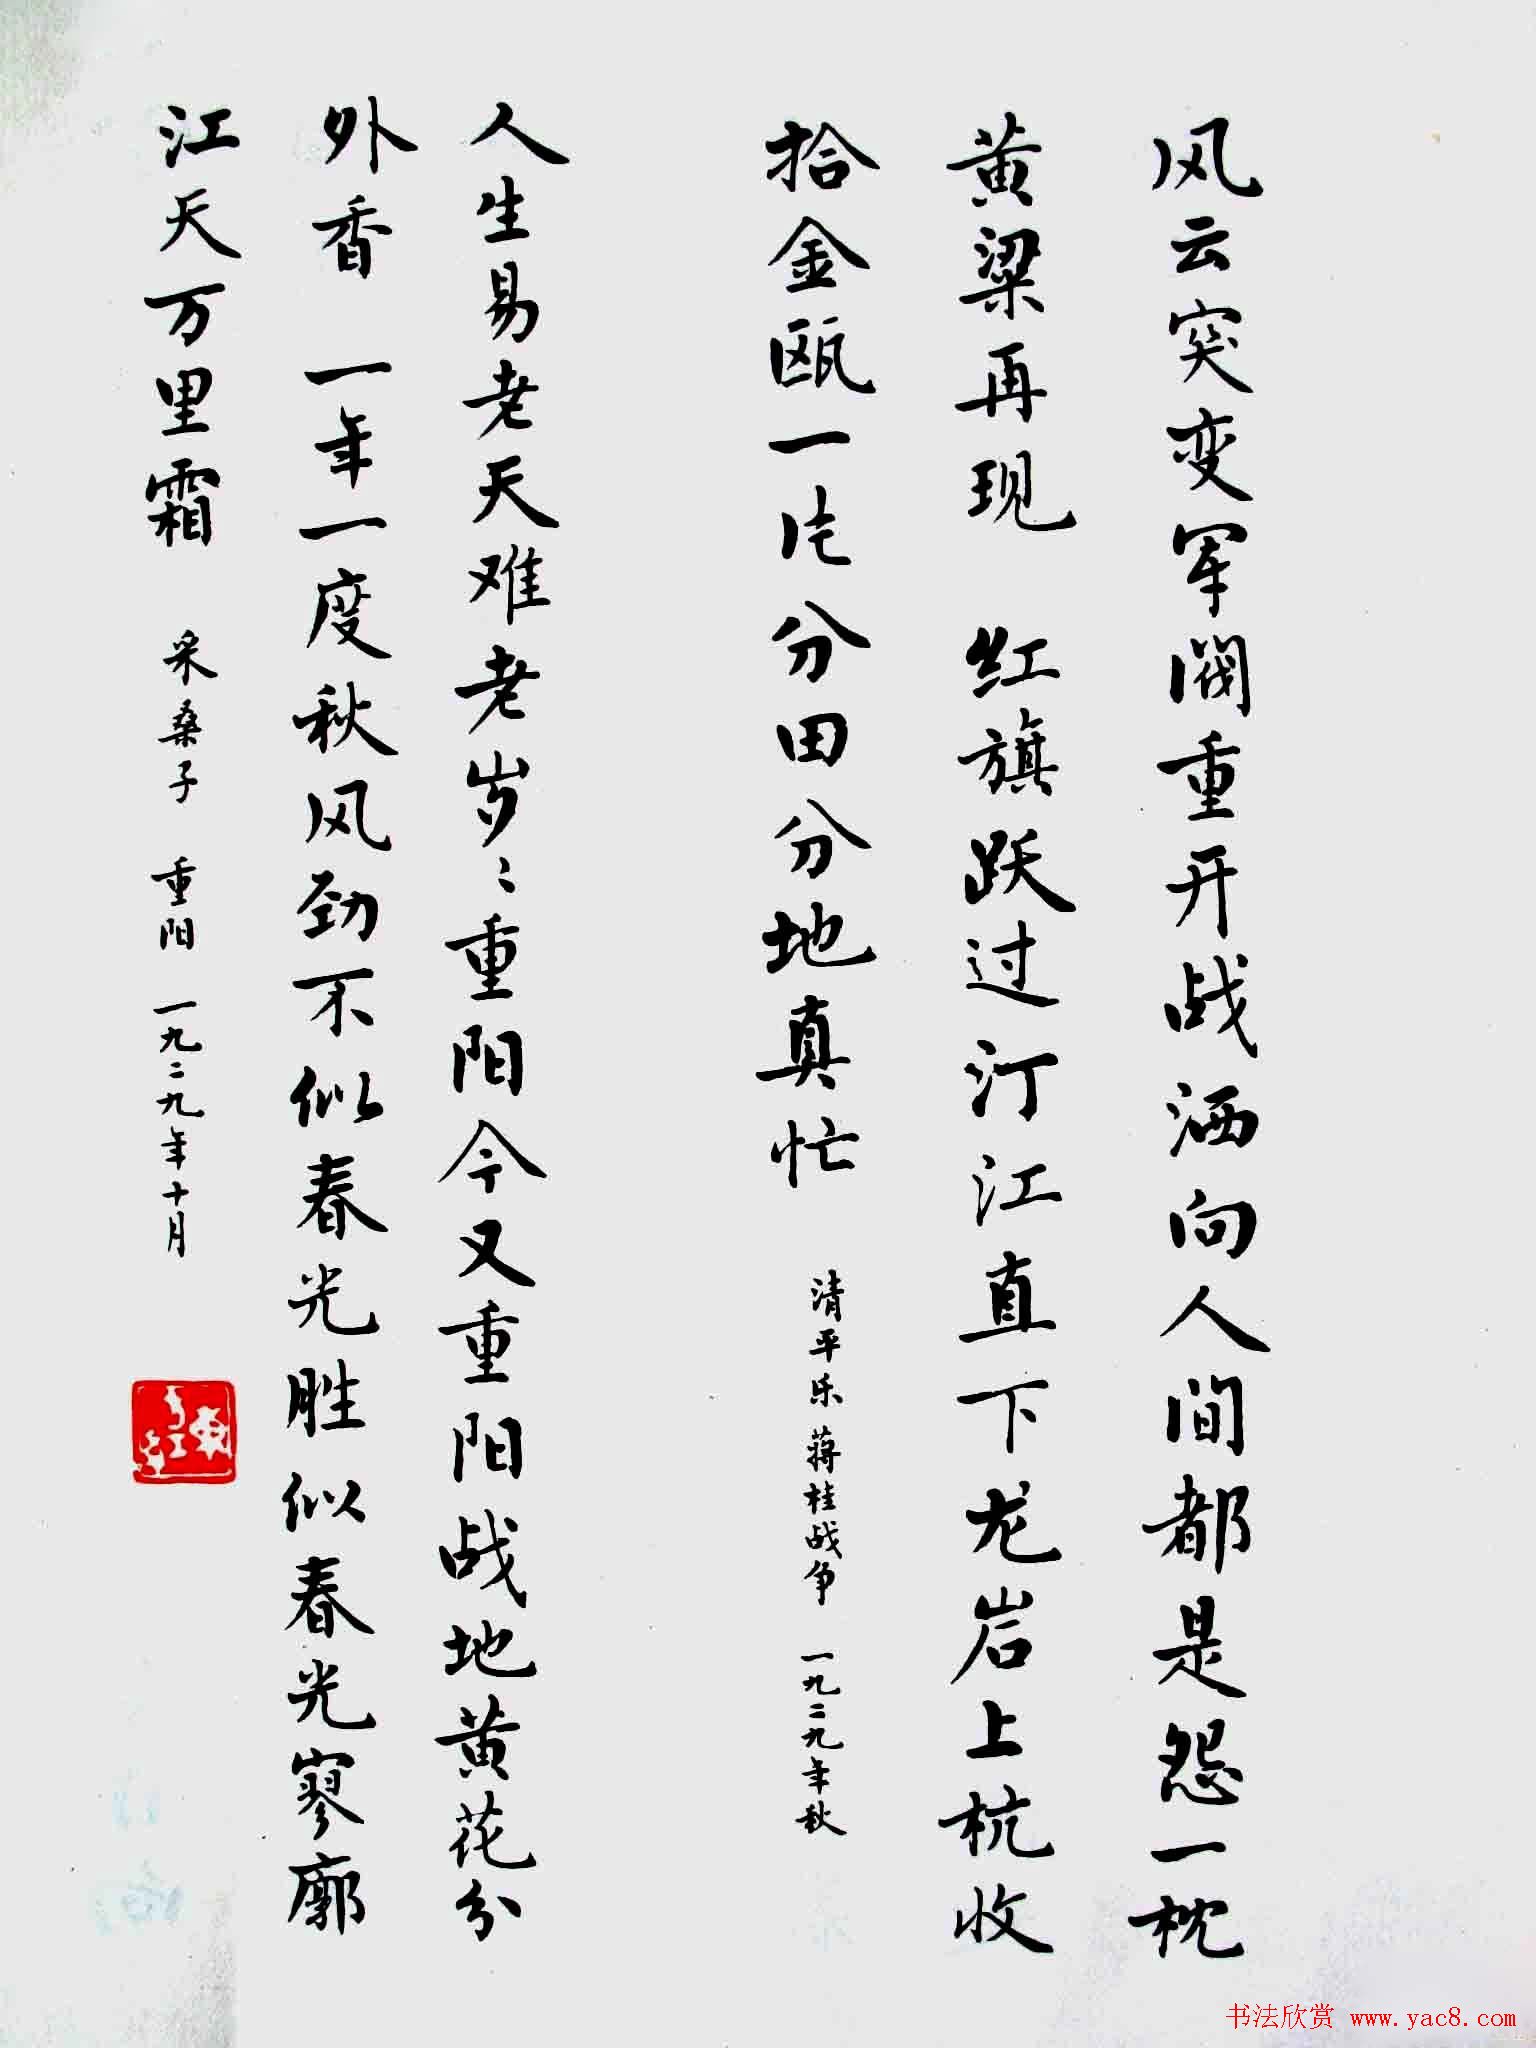 风云突变军阀重开战洒向人间都是怨一枕
黄粱再现 红旗跃过汀江直下龙岩上杭收
拾金瓯一片分田分地真忙
清平乐 蒋桂战争 一九二九年秋
人生易老天难老岁〻重阳今又重阳战地黄花分
外香 一年一度秋风劲不似春光胜似春光寥廓
江天万里霜 采桑子 重阳 一九二九年十月
书法欣赏 www.yac8.com